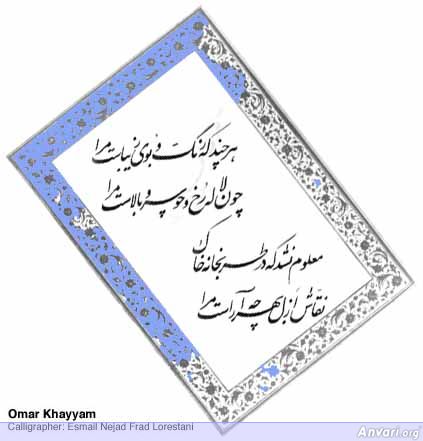 هر چند که رنگ و بوی زیباست مرا
چون لاله رخ و چو سرو بالاست مرا
معلوم نشد که در طربخانه خاک
نقاش ازل بهر چه آراست مرا
Omar Khayyam
Calligrapher: Esmail Nejad Frad Lorestani
Anvari.org